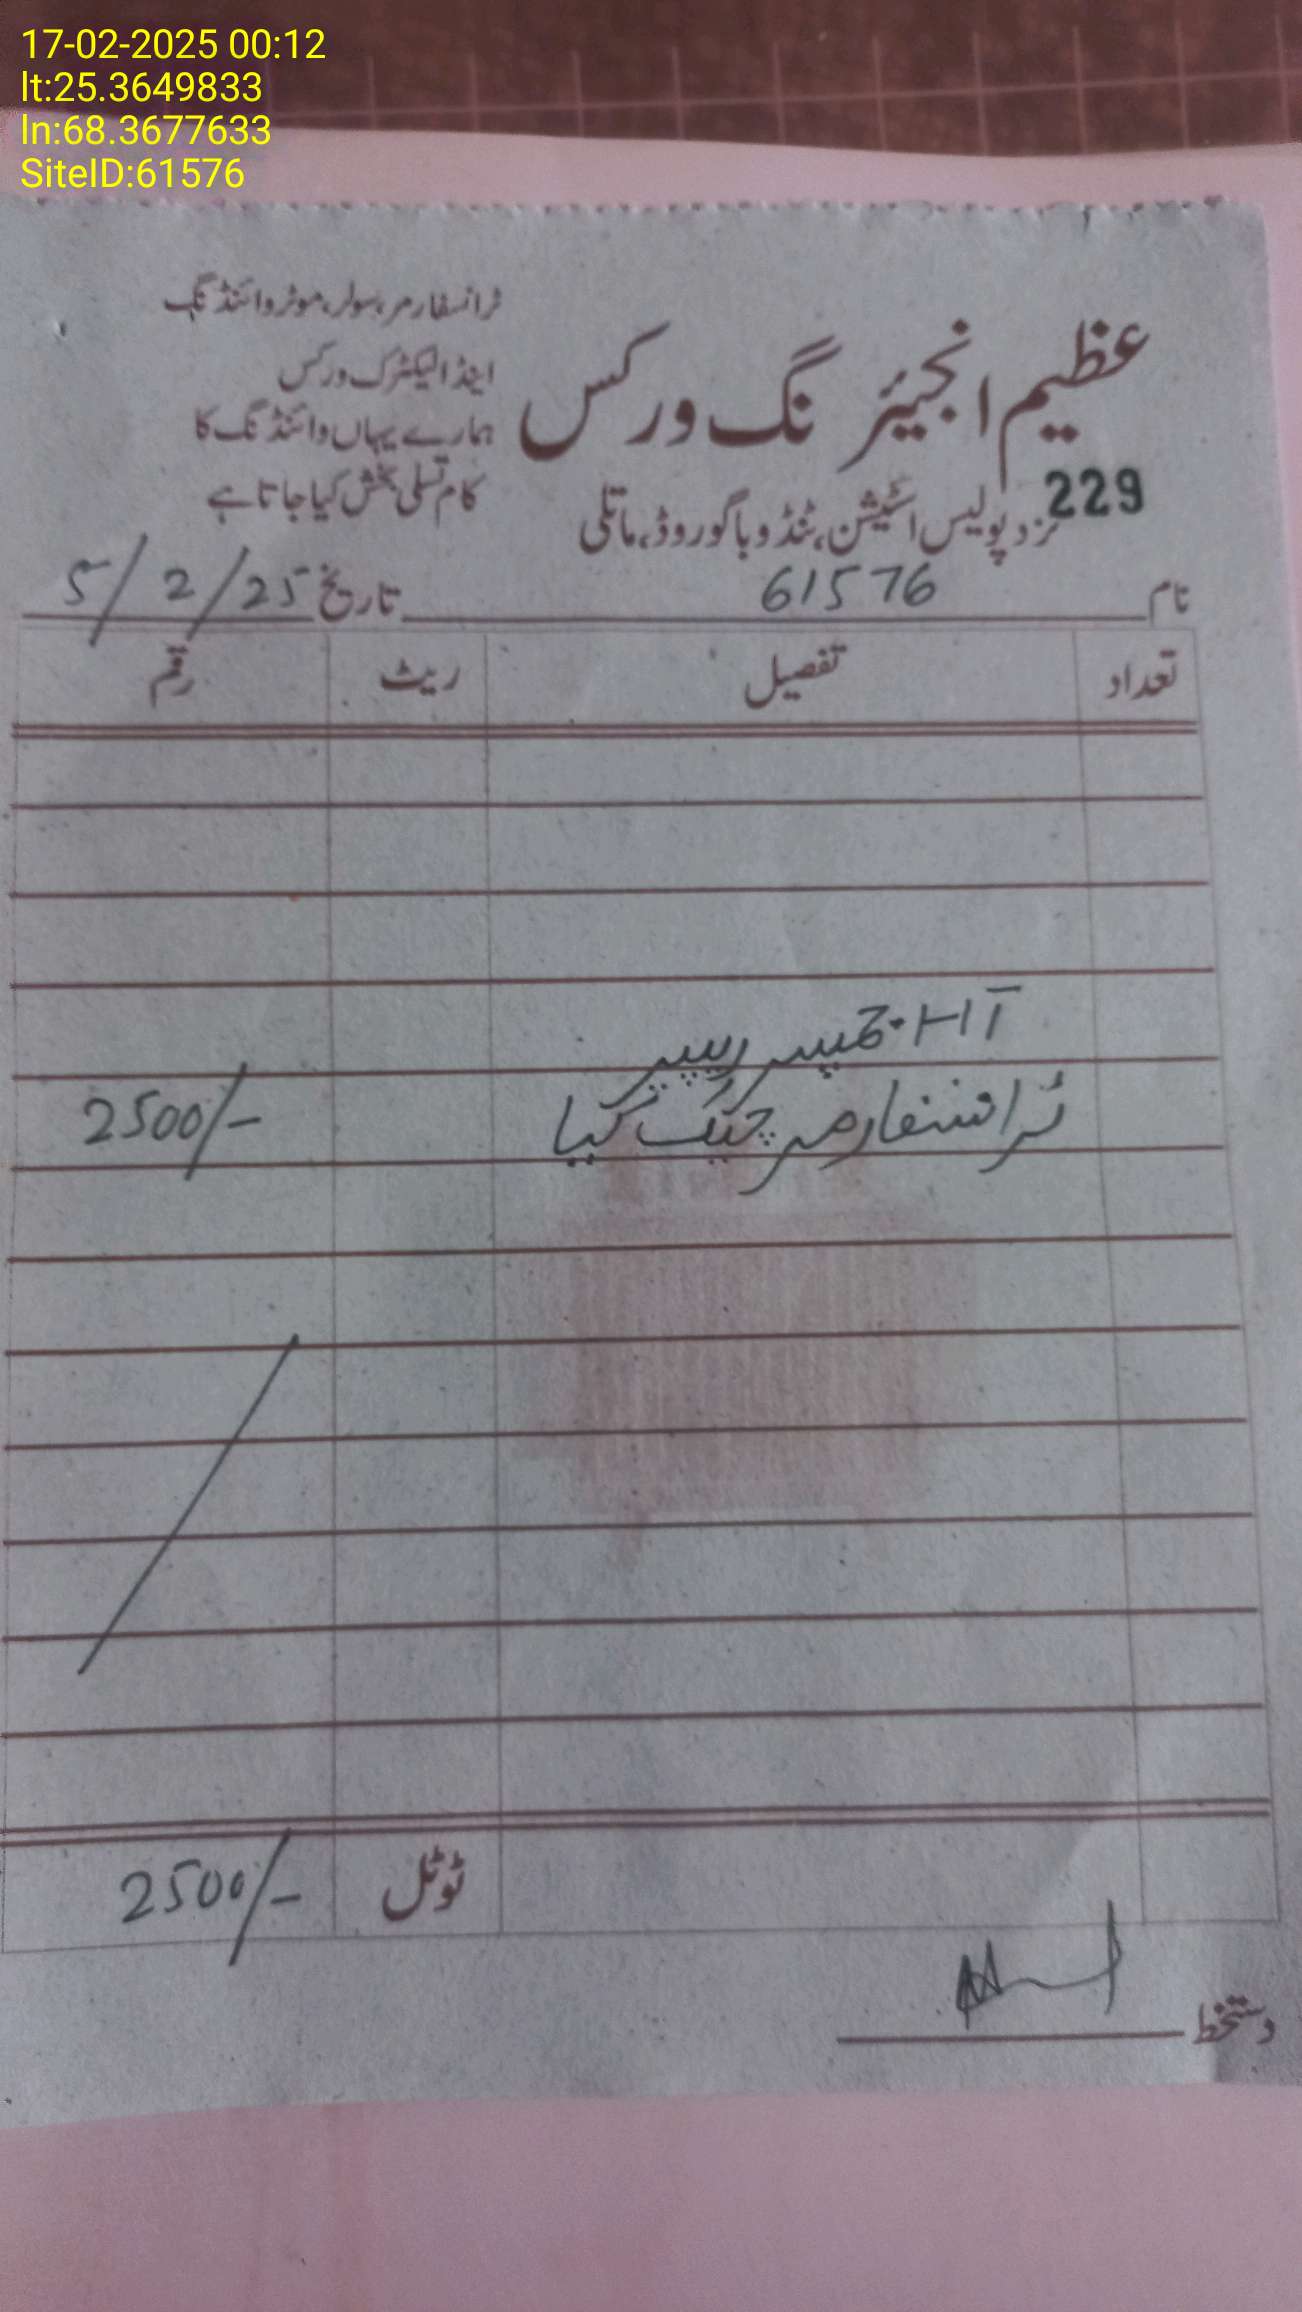 17-02-2025 00:12
lt:25.3649833
ln:68.3677633
SiteID:61576
عظیم انجینئرنگ ورکس
نزد پولیس اسٹیشن، ٹنڈو باگو روڈ، ماتلی
229
ٹرانسفارمر، سولر، موٹر وائنڈنگ
اینڈ الیکٹرک ورکس
ہمارے یہاں وائنڈنگ کا
کام تسلی بخش کیا جاتا ہے
نام 61576 تاریخ 5/2/25
تعداد تفصیل ریٹ رقم
HT جمپر رپیر
ٹرانسفارمر چیک کیا 2500/-
ٹوٹل 2500/-
دستخط